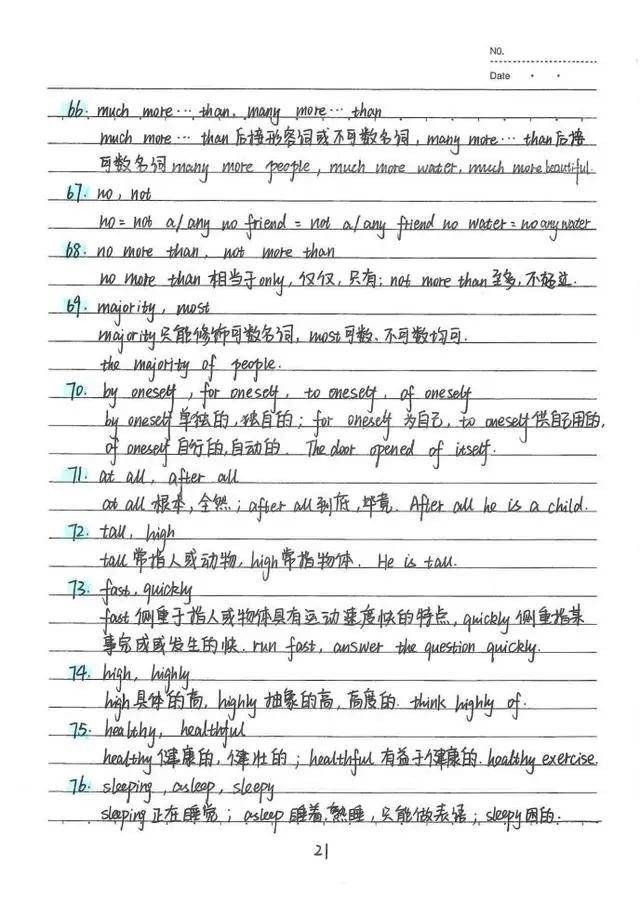 No.
Date
66. much more… than, many more… than
much more… than后接形容词或不可数名词, many more… than后接
可数名词 many more people, much more water, much more beautiful.
67. no, not
no = not a/any no friend = not a/any friend no water = no any water
68. no more than, not more than
no more than 相当于only, 仅仅, 只有; not more than至多, 不超过.
69. majority, most
majority只能修饰可数名词, most可数、不可数均可.
the majority of people.
70. by oneself, for oneself, to oneself, of oneself
by oneself单独的, 独自的; for oneself 为自己, to oneself供自己用的,
of oneself 自行的, 自动的. The door opened of itself.
71. at all, after all
at all 根本, 全然; after all到底, 毕竟. After all he is a child.
72. tall, high
tall 常指人或动物, high常指物体. He is tall.
73. fast, quickly
fast 侧重于指人或物体具有运动速度快的特点, quickly 侧重指某
事完成或发生的快. run fast, answer the question quickly.
74. high, highly
high具体的高, highly 抽象的高, 高度的. think highly of.
75. healthy, healthful
healthy健康的, 健壮的; healthful 有益于健康的. healthy exercise.
76. sleeping, asleep, sleepy
sleeping正在睡觉; asleep 睡着, 熟睡, 只能做表语; sleepy困的.
21